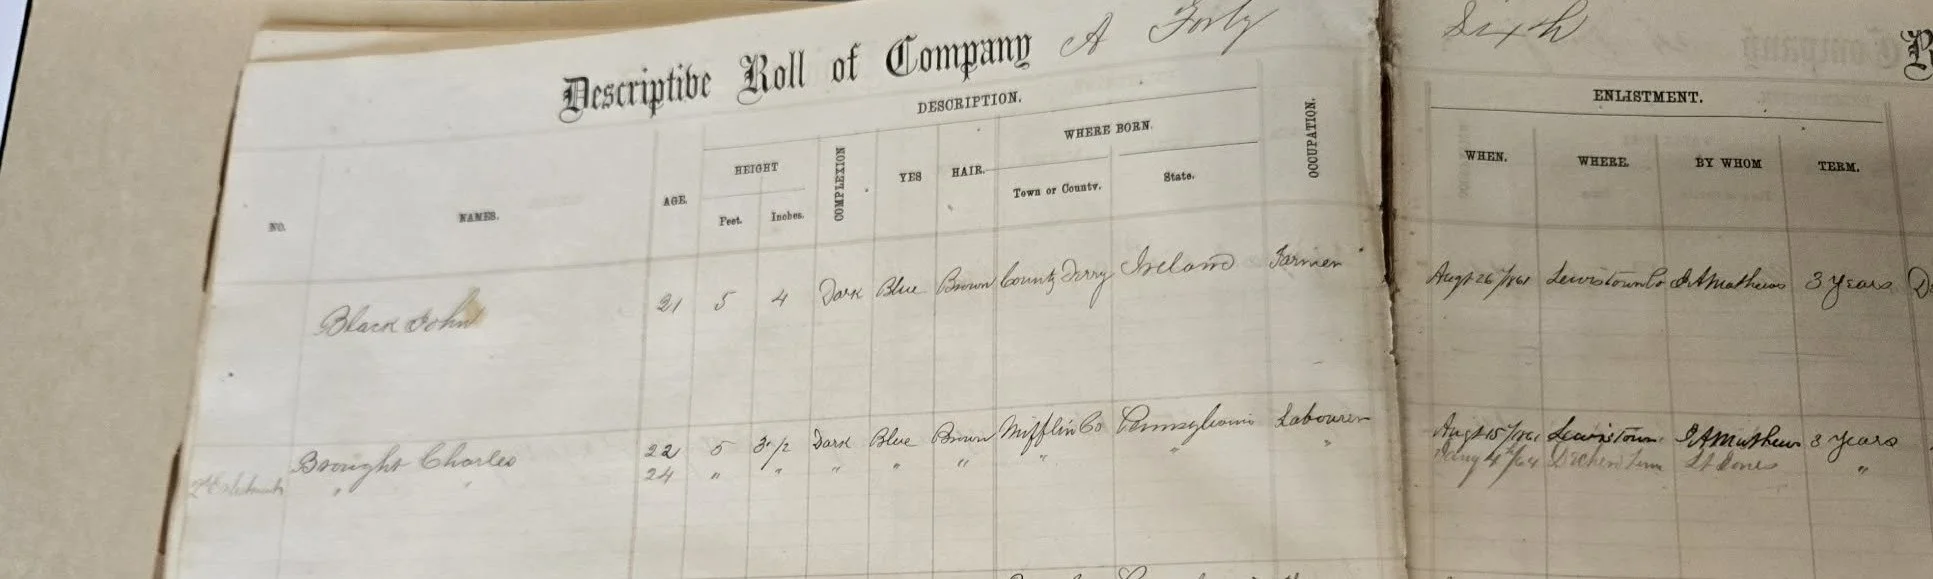 Descriptive Roll of Company A Forty Sixth
DESCRIPTION. ENLISTMENT.
NO. NAMES. AGE. HEIGHT COMPLEXION YES HAIR. WHERE BORN. OCCUPATION. WHEN. WHERE. BY WHOM TERM.
Feet. Inches. Town or County. State.
Black John 21 5 4 Dark Blue Brown County Derry Ireland Farmer Augt 26/1861 Lewistown Co J A Mathews 3 years
Brought Charles 22 5 3 1/2 Dark Blue Brown Mifflin Co Pennsylvania Labourer Augt 15/1861 Lewistown J A Mathews 3 years
2d Enlistment " " 24 " " " " " " " " 4th/64 Lt Jones "